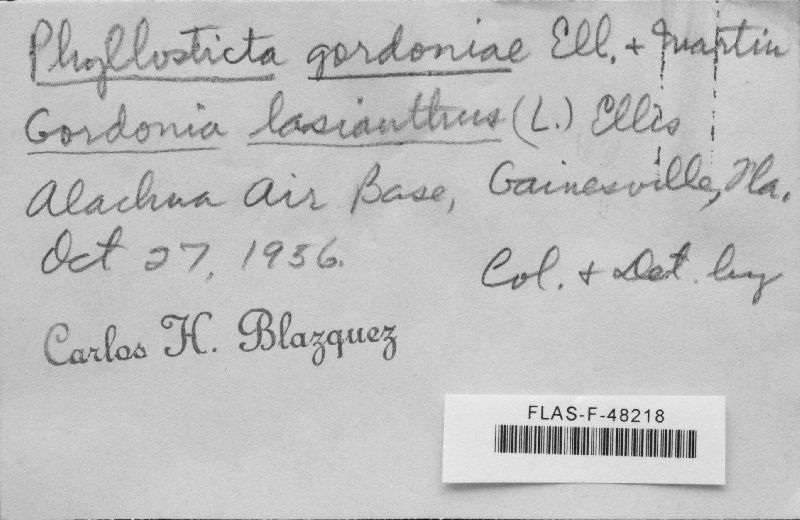 Phyllosticta gordoniae Ell. + Martin
Gordonia lasianthus (L.) Ellis
Alachua Air Base, Gainesville, Fla.
Oct 27, 1956.
Col. + Det. by
Carlos H. Blazquez
FLAS-F-48218